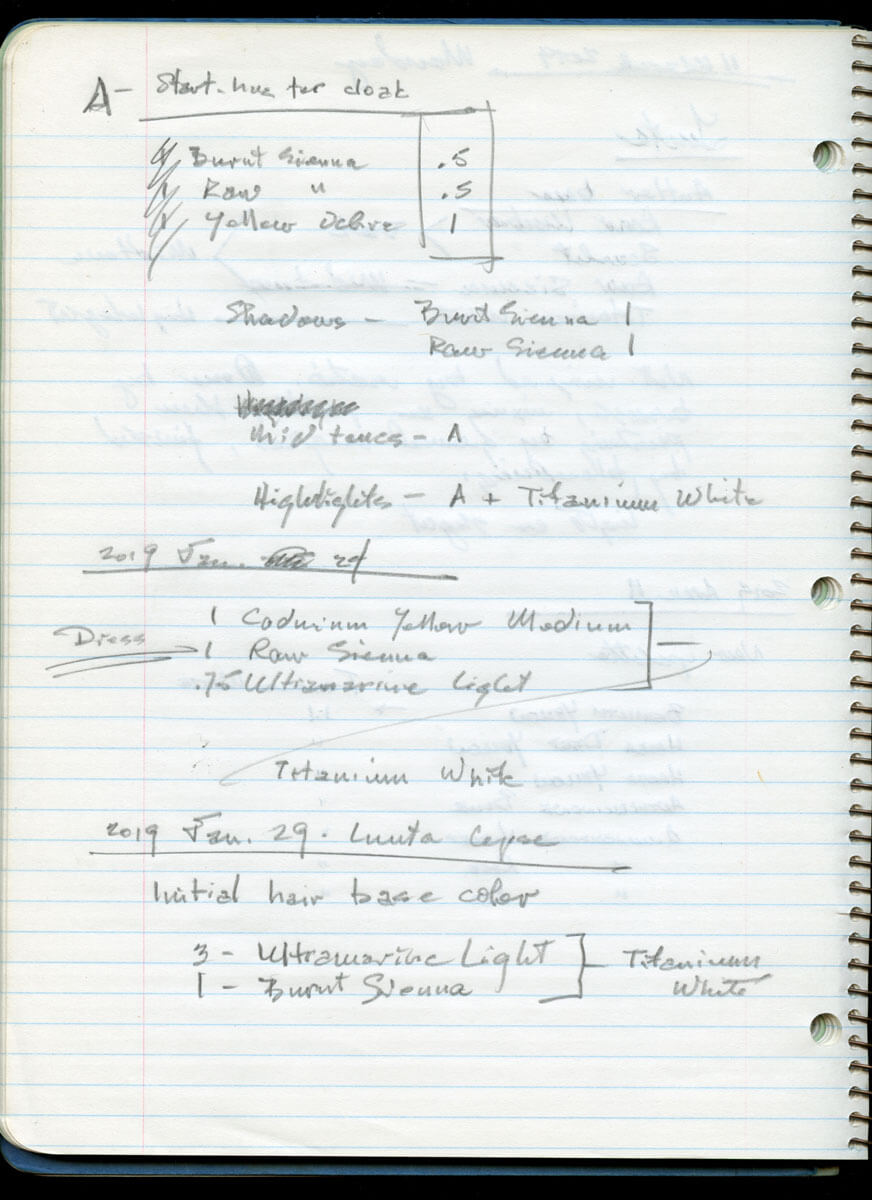 A - Start. hue for cloak
Burnt Sienna .5
Raw " .5
Yellow Ochre 1
Shadows - Burnt Sienna 1
Raw Sienna 1
Mid tones - A
Highlights - A + Titanium White
2019 Jan.
1 Cadmium Yellow Medium
Dress 1 Raw Sienna
.75 Ultramarine Light
Titanium White
2019 Jan. 29.
Initial hair base color
3 - Ultramarine Light Titanium
1 - Burnt Sienna White